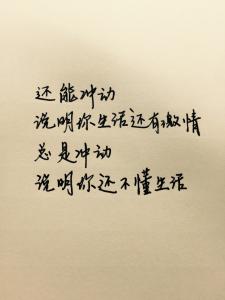 还能冲动
说明你生活还有激情
总是冲动
说明你还不懂生活